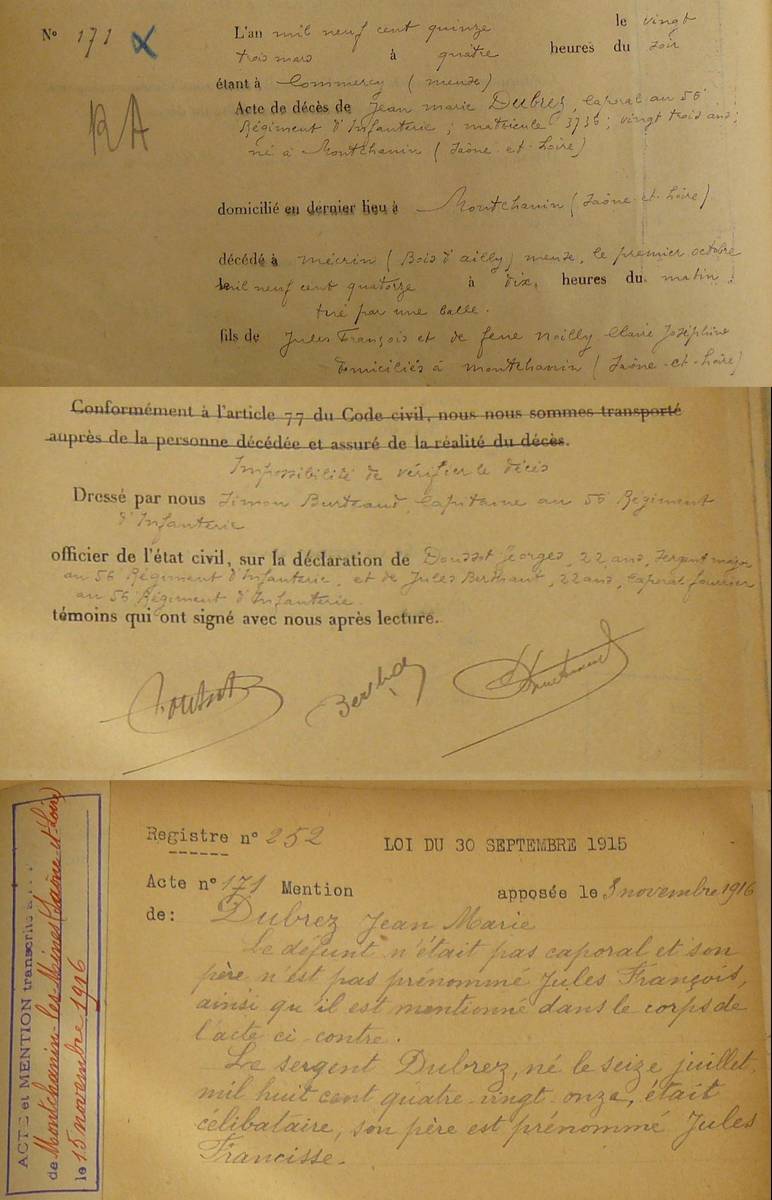 N° 171 X
L'an mil neuf cent quinze le vingt
trois mars à quatre heures du soir
étant à Commercy (meuse)
RA
Acte de décès de Jean marie Dubrez, Caporal au 56
Régiment d'Infanterie; matricule 3736; vingt trois ans;
né à Montchanin (Saône-et-Loire)
domicilié en dernier lieu à Montchanin (Saône-et-Loire)
décédé à mécrin (Bois d'ailly) meuse, le premier octobre
mil neuf cent quatorze à dix heures du matin.
tué par une balle.
fils de Jules François et de feue noilly Claire Joséphine
domiciliés à montchanin (Saône-et-Loire)
Conformément à l'article 77 du Code civil, nous nous sommes transporté
auprès de la personne décédée et assuré de la réalité du décès.
Impossibilité de vérifier le décès
Dressé par nous Simon Capitaine au 56 Régiment
d'Infanterie
officier de l'état civil, sur la déclaration de Doussot Georges, 22 ans, Sergent major
au 56 Régiment d'Infanterie, et de Jules Berthaut, 22 ans, Caporal fourrier
au 56 Régiment d'Infanterie
témoins qui ont signé avec nous après lecture.
ACTE et MENTION transcrits à
de Montchanin-les-Mines (Saône et Loire
le 15 novembre 1916
Registre n° 252 LOI DU 30 SEPTEMBRE 1915
Acte n° 171 Mention apposée le 3 novembre 1916
de: Dubrez Jean Marie
Le défunt n'était pas caporal et son
père n'est pas prénommé Jules François,
ainsi qu'il est mentionné dans le corps de
l'acte ci-contre.
Le sergent Dubrez, né le seize juillet
mil huit cent quatre-vingt-onze, était
célibataire, son père est prénommé Jules
Francisse.